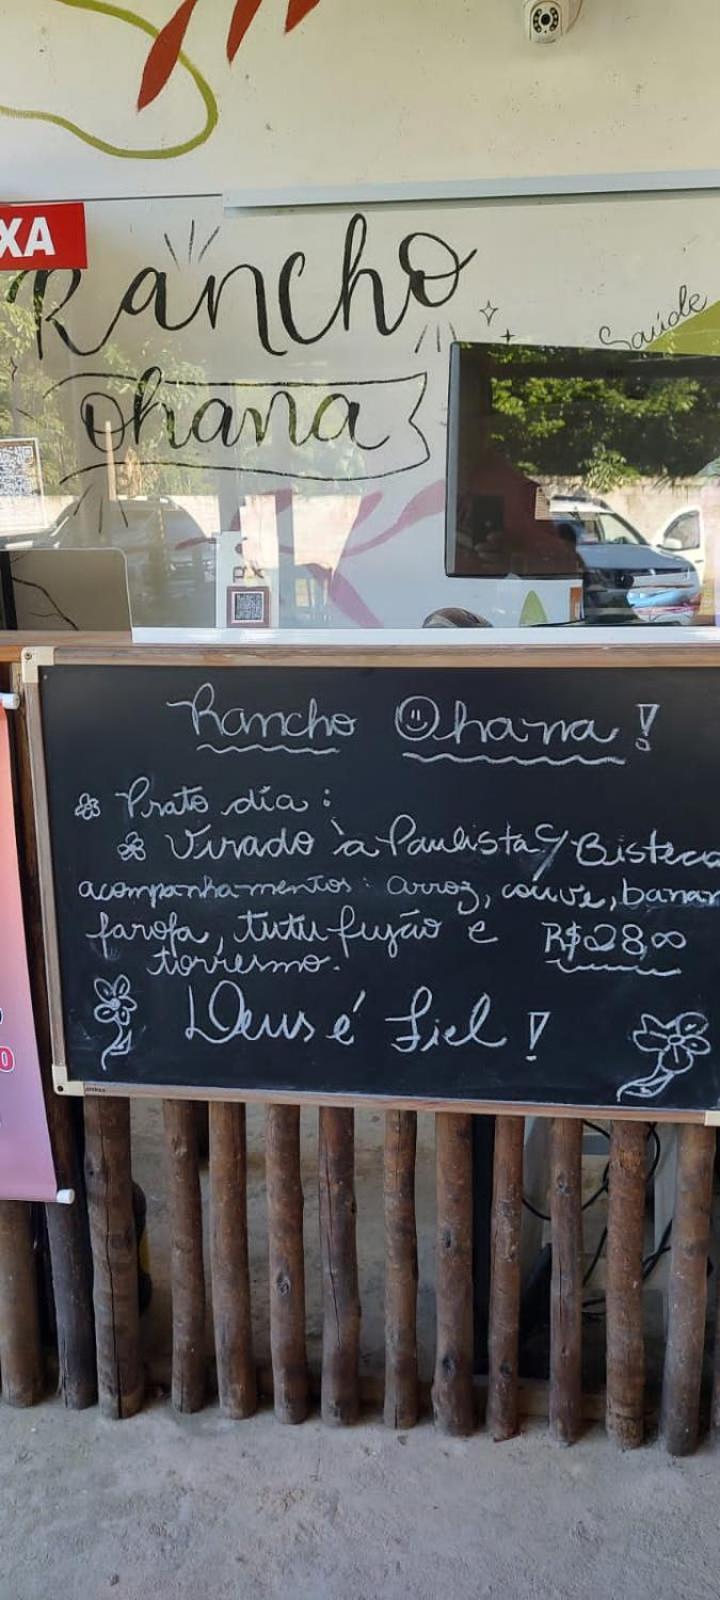 XA
Rancho
ohana
Saúde
PIX
Rancho Ohana!
Prato dia:
Virado à Paulista c/ Bisteca
acompanhamentos: arroz, couve, banan
farofa, tutu fujão e R$28,00
torresmo.
Deus é fiel!